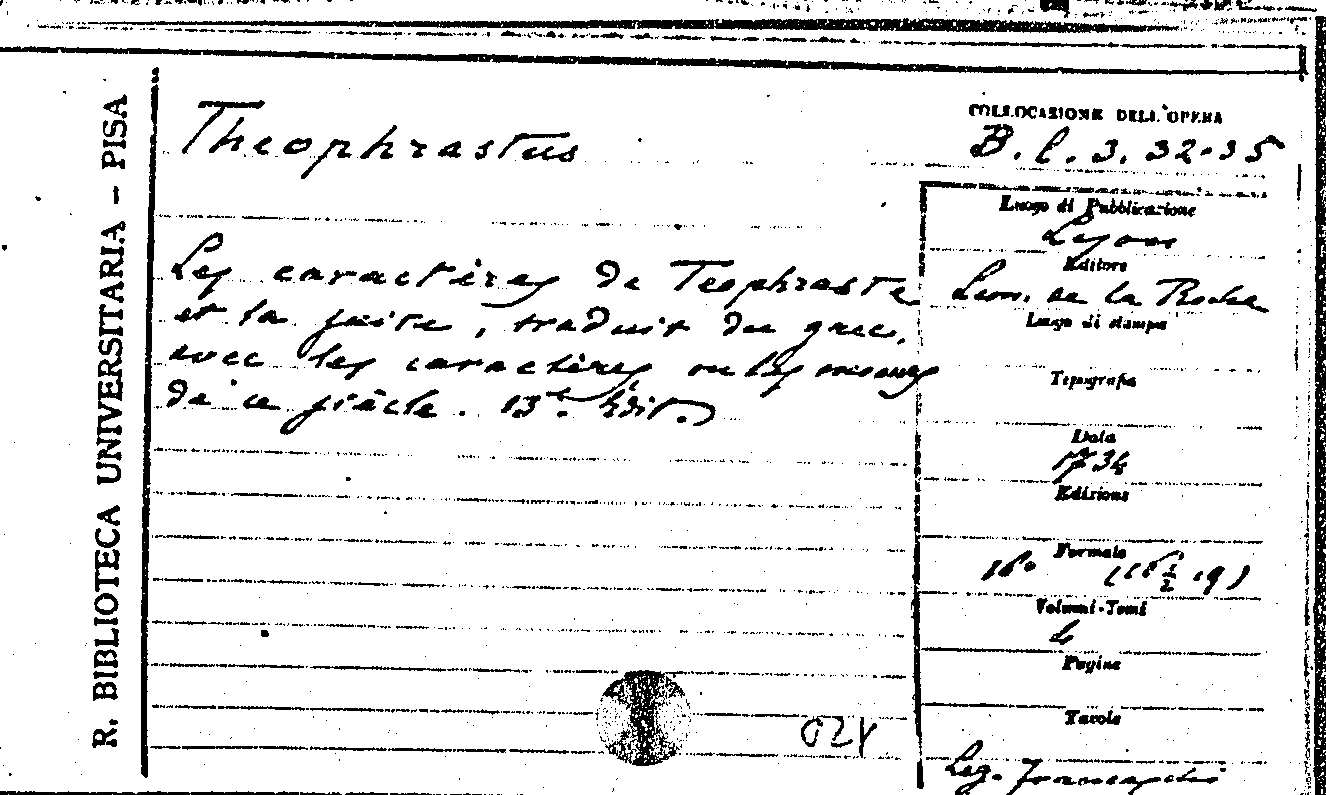 R. BIBLIOTECA UNIVERSITARIA - PISA
Theophrastus
COLLOCAZIONE DELL'OPERA
B. l. 3. 32-35
Les caractères de Teophraste
et la suite, traduit du grec,
avec les caractères ou les moeurs
de ce siècle. 13e. Edit.
Luogo di Pubblicazione
Lyon
Editore
Leon. de la Roche
Luogo di stampa
Tipografia
Data
1734
Edizione
Formato
16° (16½ × 9)
Volumi-Tomi
4
Pagine
Tavole
Leg.